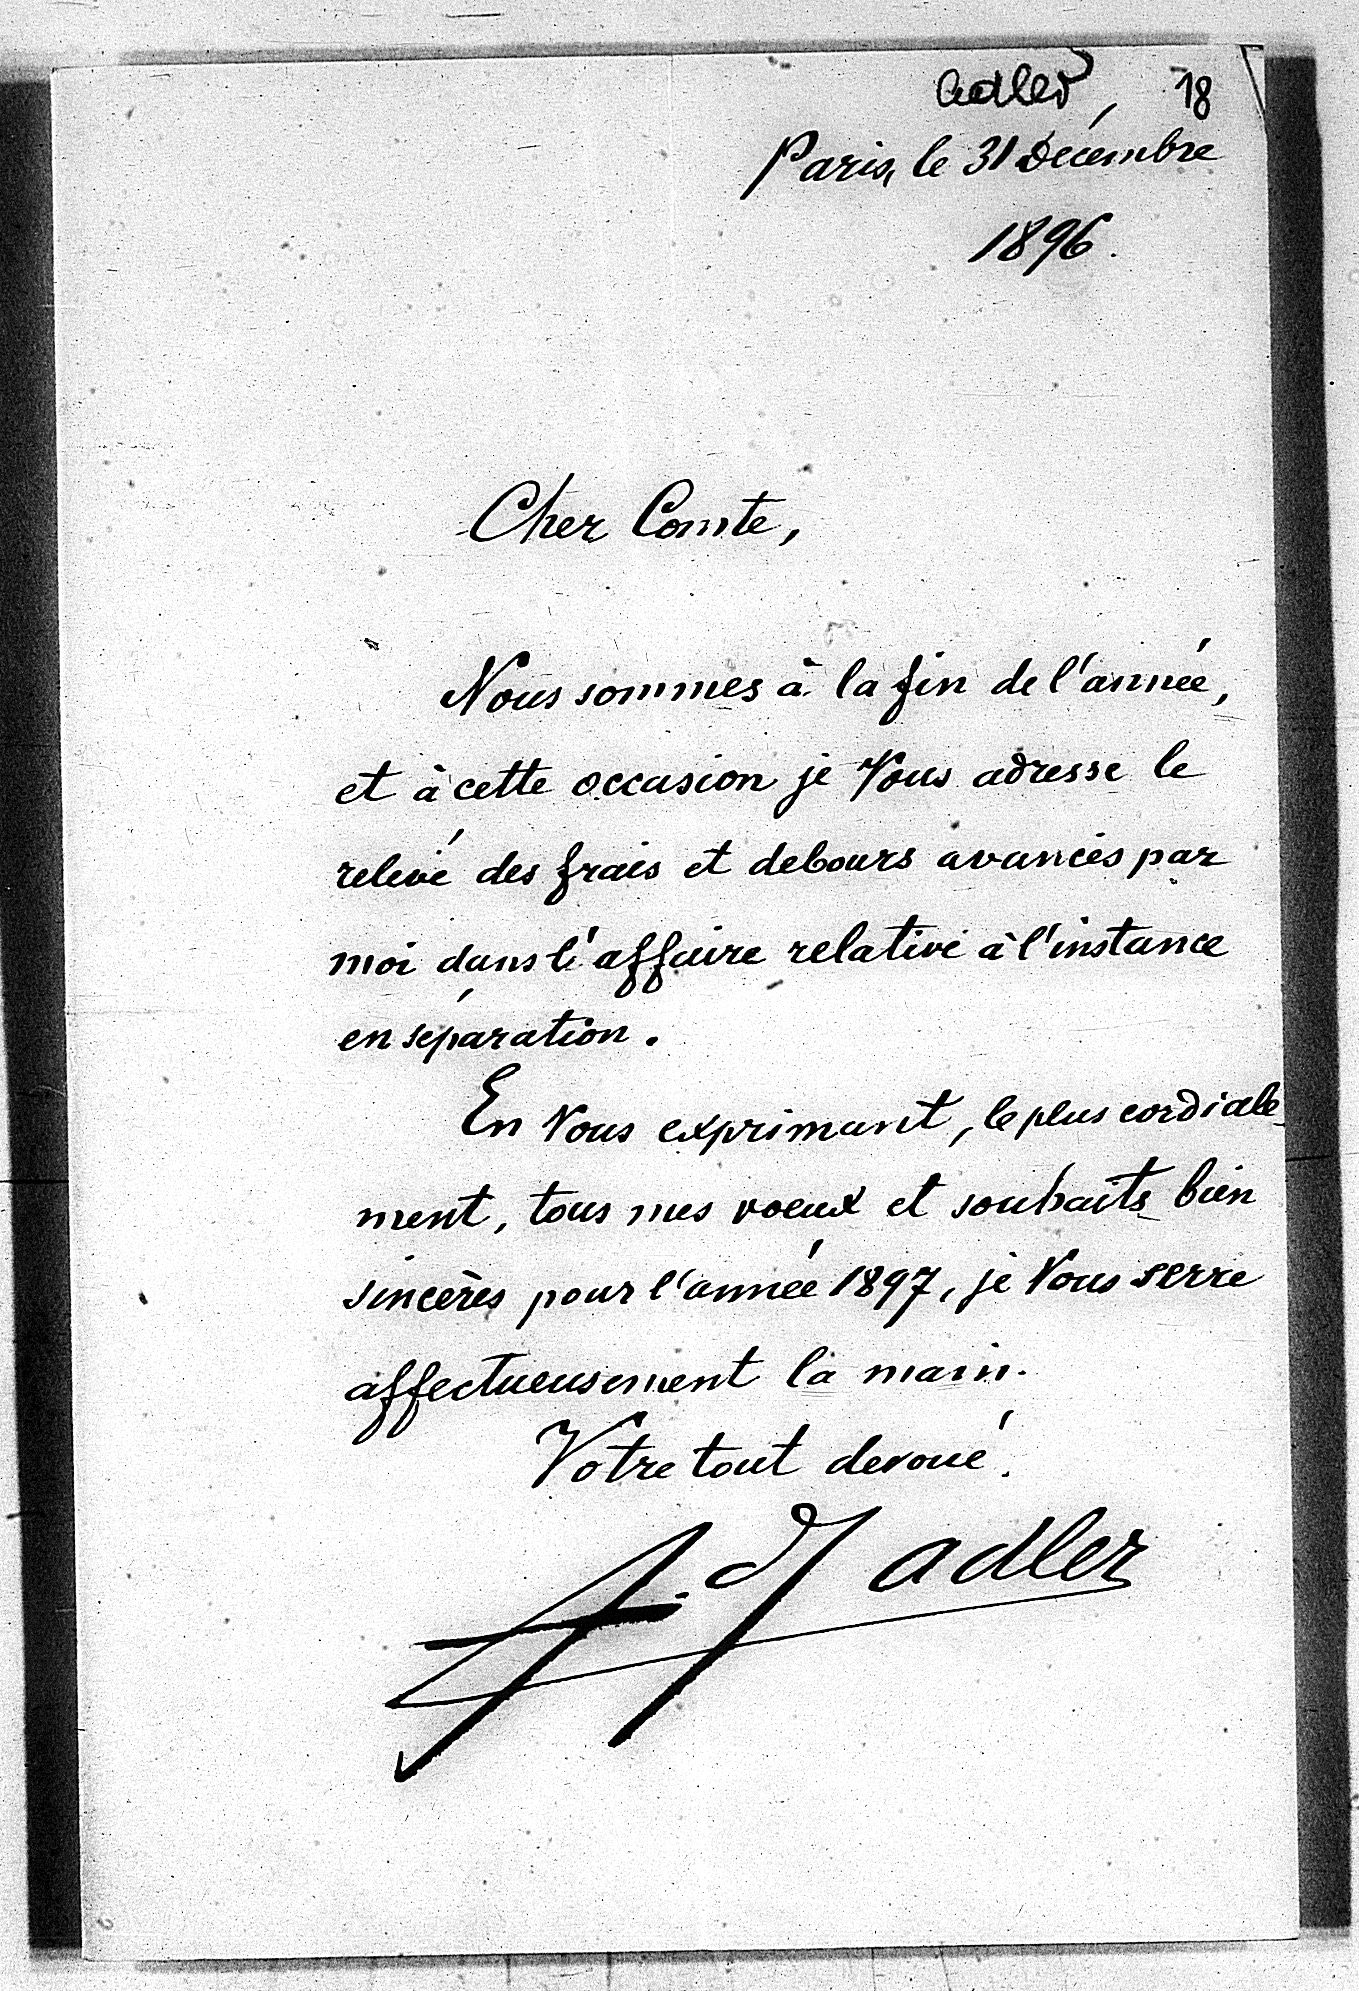 Adler, 18
Paris, le 31 Décembre
1896.
Cher Comte,
Nous sommes à la fin de l'année,
et à cette occasion je Vous adresse le
relevé des frais et debours avancés par
moi dans l'affaire relative à l'instance
en séparation.
En Vous exprimant, le plus cordiale-
ment, tous mes voeux et souhaits bien
sincères pour l'année 1897, je Vous serre
affectueusement la main.
Votre tout devoué.
Adler